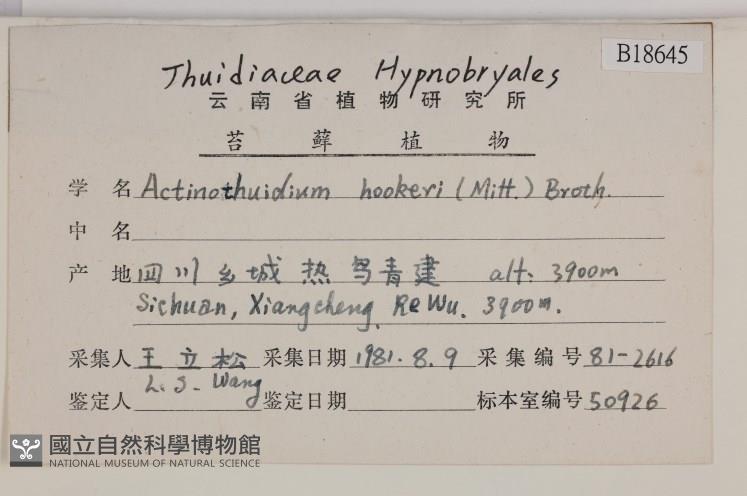 B18645
Thuidiaceae Hypnobryales
云南省植物研究所
苔藓植物
学名 Actinothuidium hookeri (Mitt.) Broth.
中名
产地 四川乡城热 青建 alt: 3900m
Sichuan, Xiangcheng, Re Wu. 3900m.
采集人 王立松 采集日期 1981.8.9 采集编号 81-2616
L.S. Wang
鉴定人 鉴定日期 标本室编号 50926
國立自然科學博物館
NATIONAL MUSEUM OF NATURAL SCIENCE